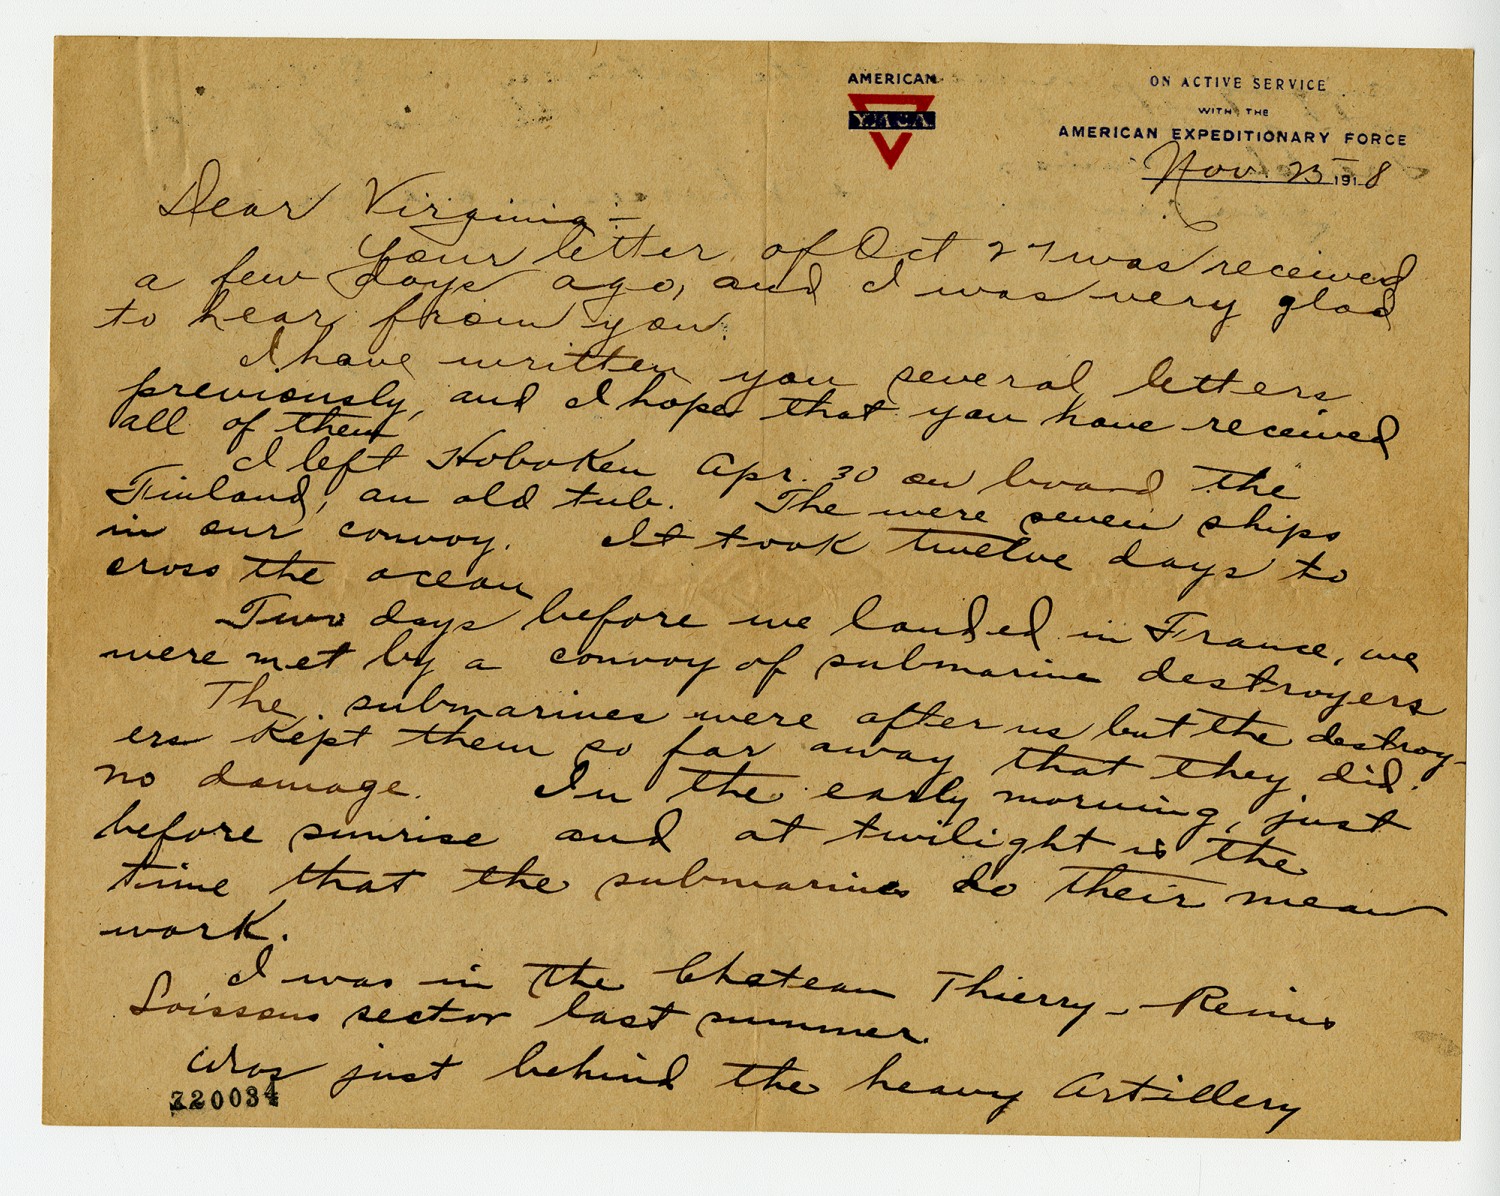 AMERICAN
Y.M.C.A.
ON ACTIVE SERVICE
WITH THE
AMERICAN EXPEDITIONARY FORCE
Nov. 23 1918
Dear Virginia -
Your letter of Oct 27 was received
a few days ago, and I was very glad
to hear from you.
I have written you several letters
previously, and I hope that you have received
all of them
I left Hoboken Apr. 30 on board the
Finland, an old tub. The were seven ships
in our convoy. It took twelve days to
cross the ocean
Two days before we landed in France, we
were met by a convoy of submarine destroyers
The submarines were after us but the destroy-
ers kept them so far away that they did
no damage. In the early morning, just
before sunrise and at twilight is the
time that the submarines do their mean
work.
I was in the Chateau Thierry - Reims
Soissons sector last summer.
Was just behind the heavy Artillery
720034